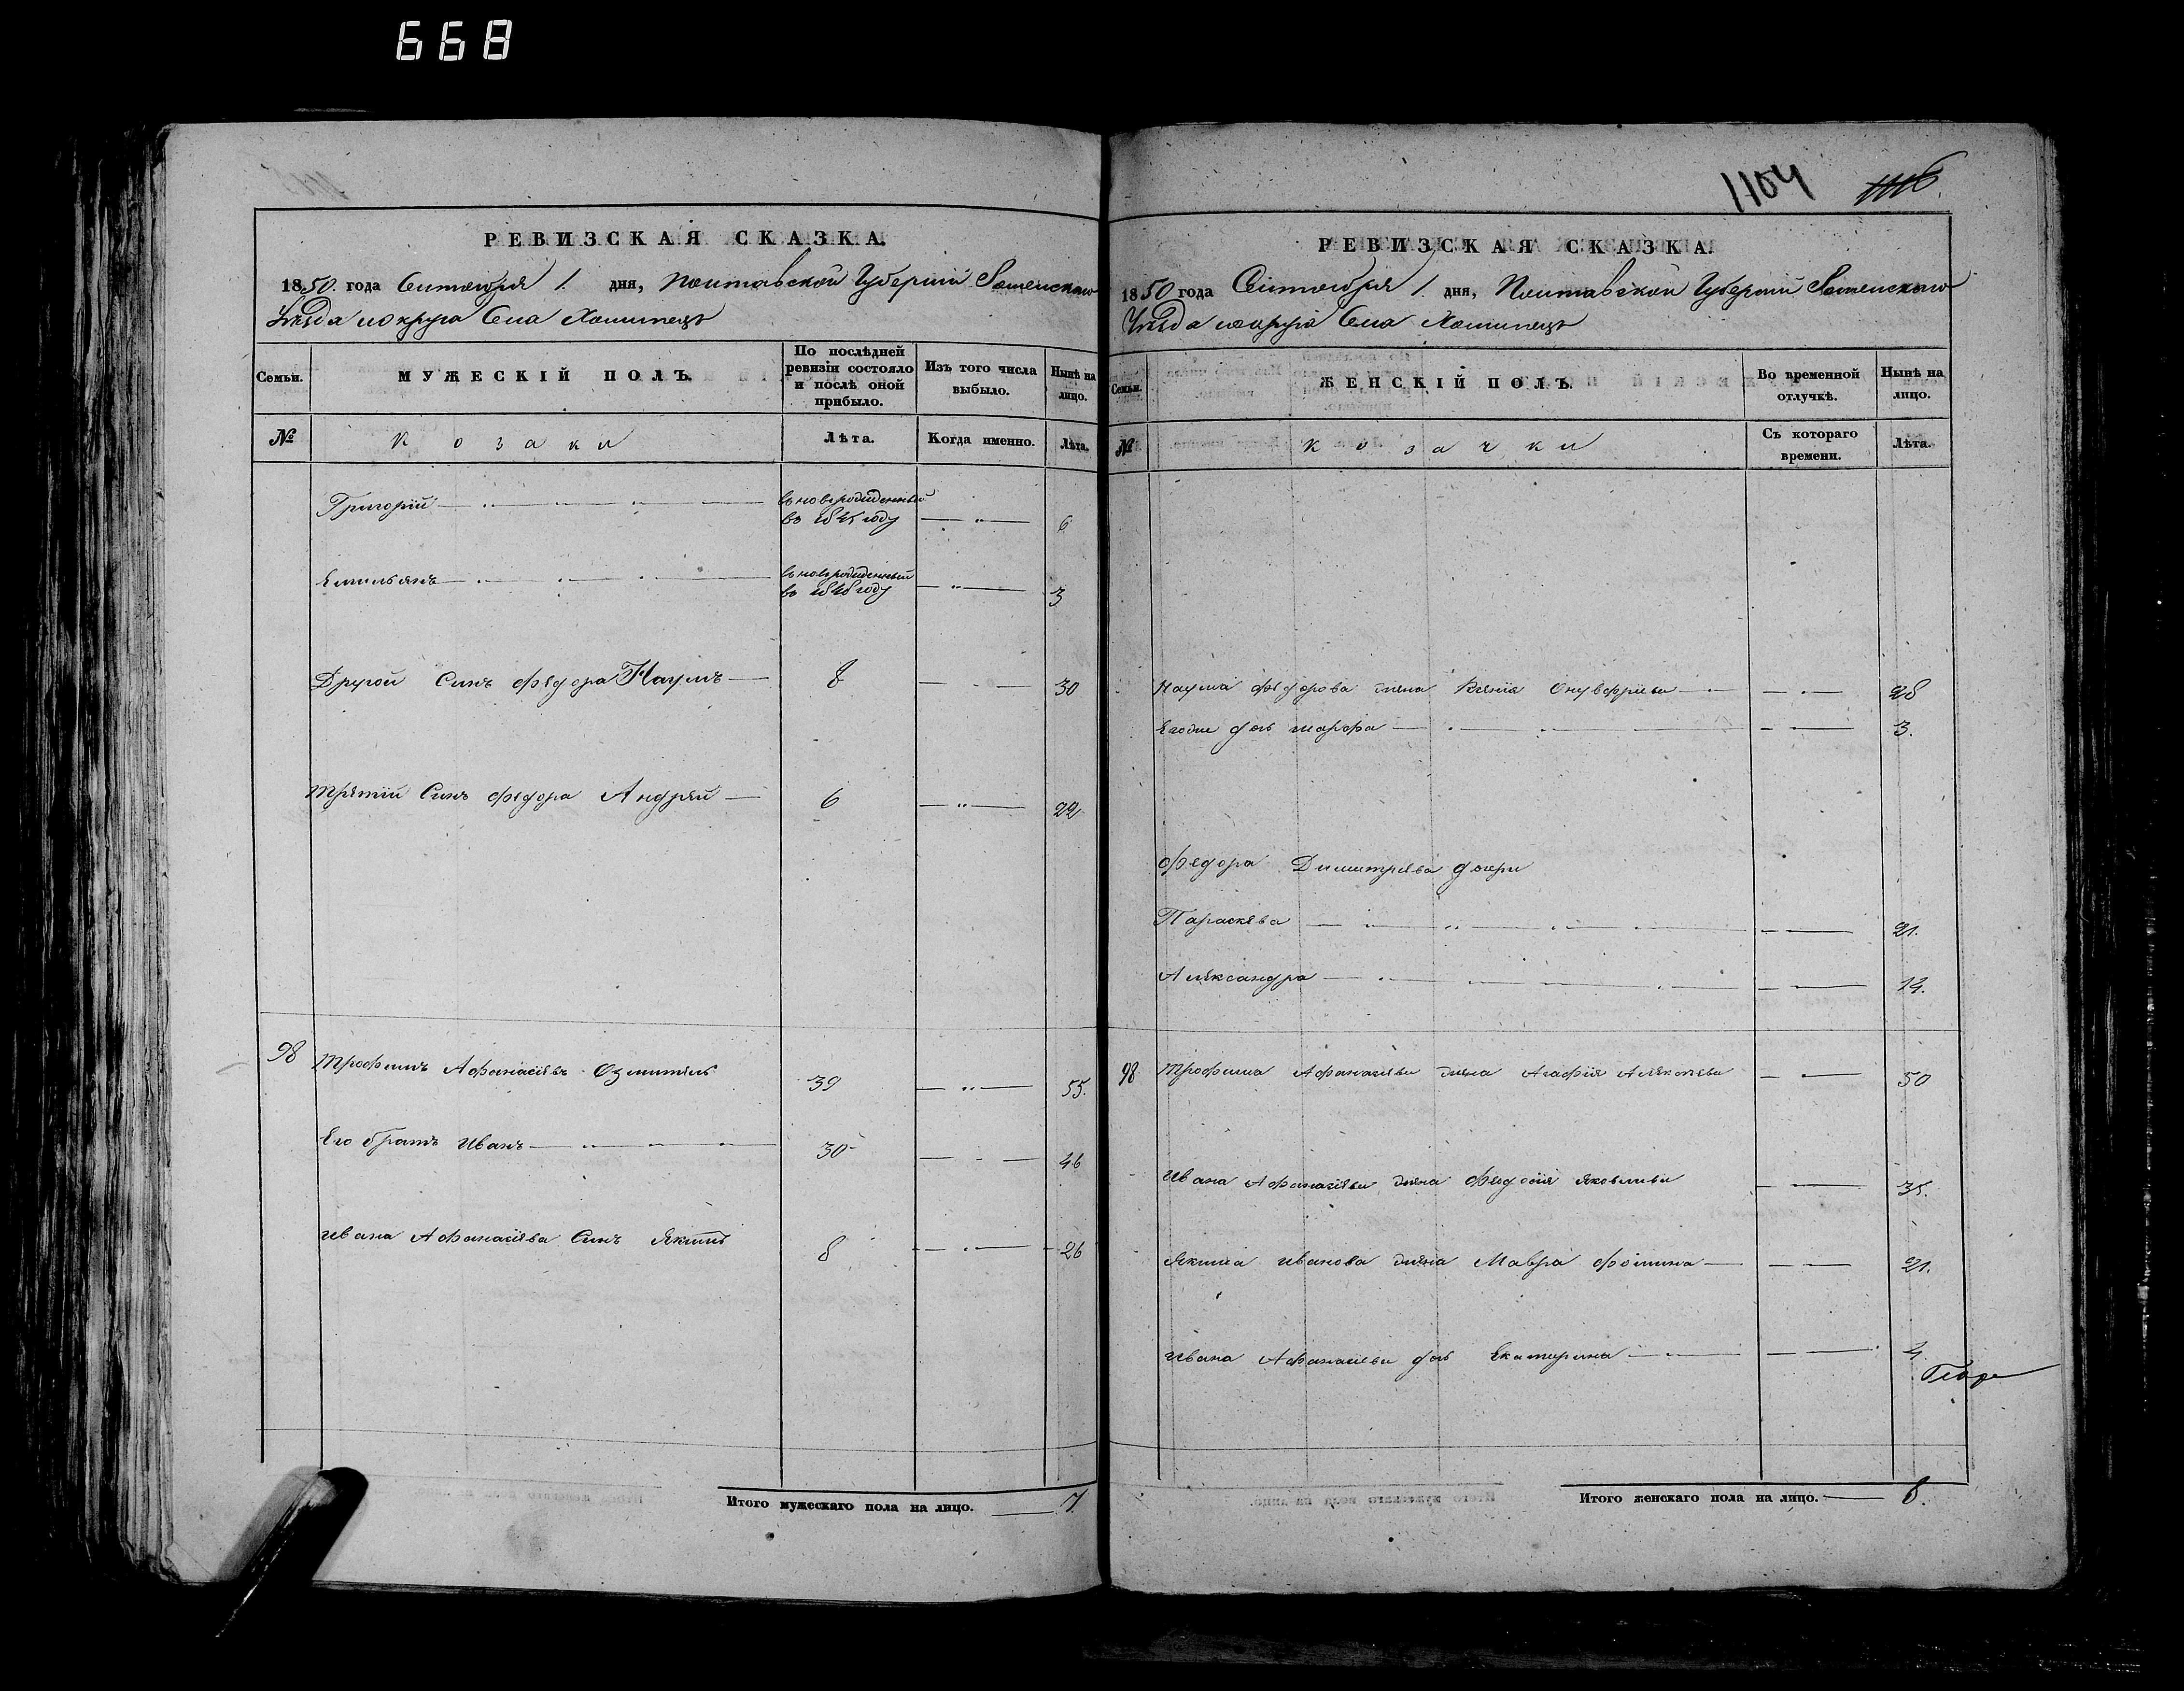 668
РЕВИЗСКАЯ СКАЗКА.
1850. года Сентября 1. дня, Полтавской Губернiи Роменскаго
Уѣзда и округа Села Хоминецъ
Семьи.
МУЖЕСКІЙ ПОЛЪ.
По послѣдней ревизіи состояло и послѣ оной прибыло.
Изъ того числа выбыло.
Нынѣ на лицо.
№
Козаки
Лѣта.
Когда именно.
Лѣта.
Григорій
въ 1845 году
6
Емельянъ
въ 1848 году
3
Другой Синъ Федора Наумъ
8
30
Третій Синъ Федора Андрей
6
22
98
Трофимъ Афанасіевъ
39
55.
Его братъ Иванъ
30
46
Ивана Афанасіева Синъ Якимъ
8
26
Итого мужескаго пола на лицо.
7.
1104
1116
РЕВИЗСКАЯ СКАЗКА.
1850 года Сентября 1. дня, Полтавской Губерніи Роменскаго
Уѣзда и округа Села Хоминецъ
Семьи.
ЖЕНСКІЙ ПОЛЪ.
Во временной отлучкѣ.
Нынѣ на лицо.
№
Козачки
Съ котораго времени.
Лѣта.
Наума Федорова жена Ксенія Онуфріева
28
Егоже дочь Марфа
3.
Федора Димитріева дочери
Параскева
21.
Александра
14.
98
Трофима Афанасіева жена Агафія Алексѣева
50
Ивана Афанасіева жена Федосія Яковлева
35.
Якима Иванова жена Мавра Фомина
21.
Ивана Афанасіева дочь Екатерина
4.
Итого женскаго пола на лицо.
8.